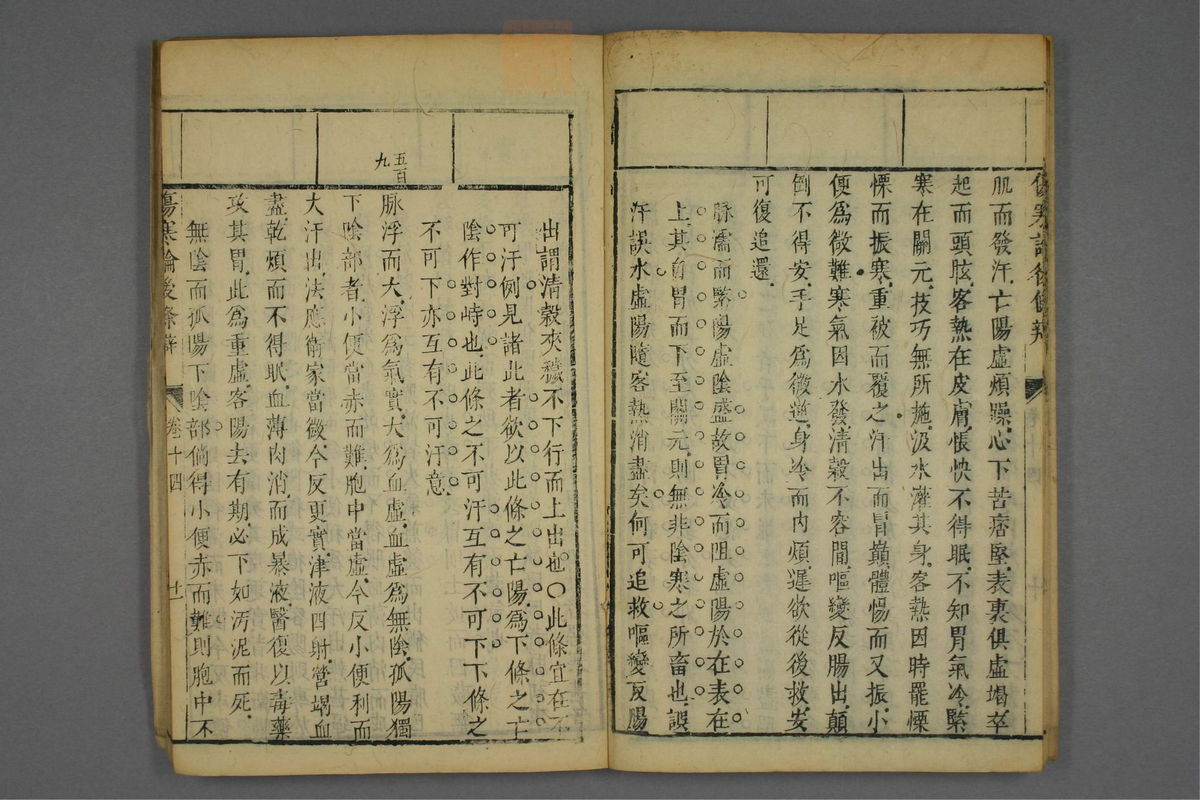 傷寒論後條辨
肌而發汗亡陽虛煩躁心下苦痞堅表裏俱虛竭卒
起而頭眩客熱在皮膚悵怏不得眠不知胃氣冷緊
寒在關元技巧無所施汲水灌其身客熱因時罷慄
慄而振寒重被而覆之汗出而冒巔體惕而又振小
便爲微難寒氣因水發清穀不容間嘔變反腸出顛
倒不得安手足爲微逆身冷而內煩遲欲從後救安
可復追還
脉濡而緊陽虛陰盛故胃冷而阻虛陽於在表在
上其自胃而下至關元則無非陰寒之所畜也誤
汗誤水虛陽隨客熱消盡矣何可追救嘔變反腸
出謂清穀夾穢不下行而上出也〇此條宜在不
可汗例見諸此者欲以此條之亡陽爲下條之亡
陰作對峙也此條之不可汗互有不可下下條之
不可下亦互有不可汗意
五百九
脉浮而大浮爲氣實大爲血虛血虛爲無陰孤陽獨
下陰部者小便當赤而難胞中當虛今反小便利而
大汗出法應衛家當微今反更實津液四射營竭血
盡乾煩而不得眠血薄肉消而成暴液醫復以毒藥
攻其胃此爲重虛客陽去有期必下如汚泥而死
無陰而孤陽下陰部倘得小便赤而難則胞中不
傷寒論後條辨 卷十四 十一